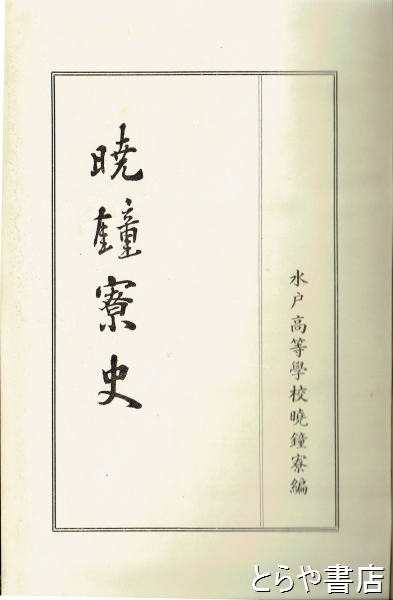 水戸高等學校曉鐘寮編
暁鐘寮史
とらや書店